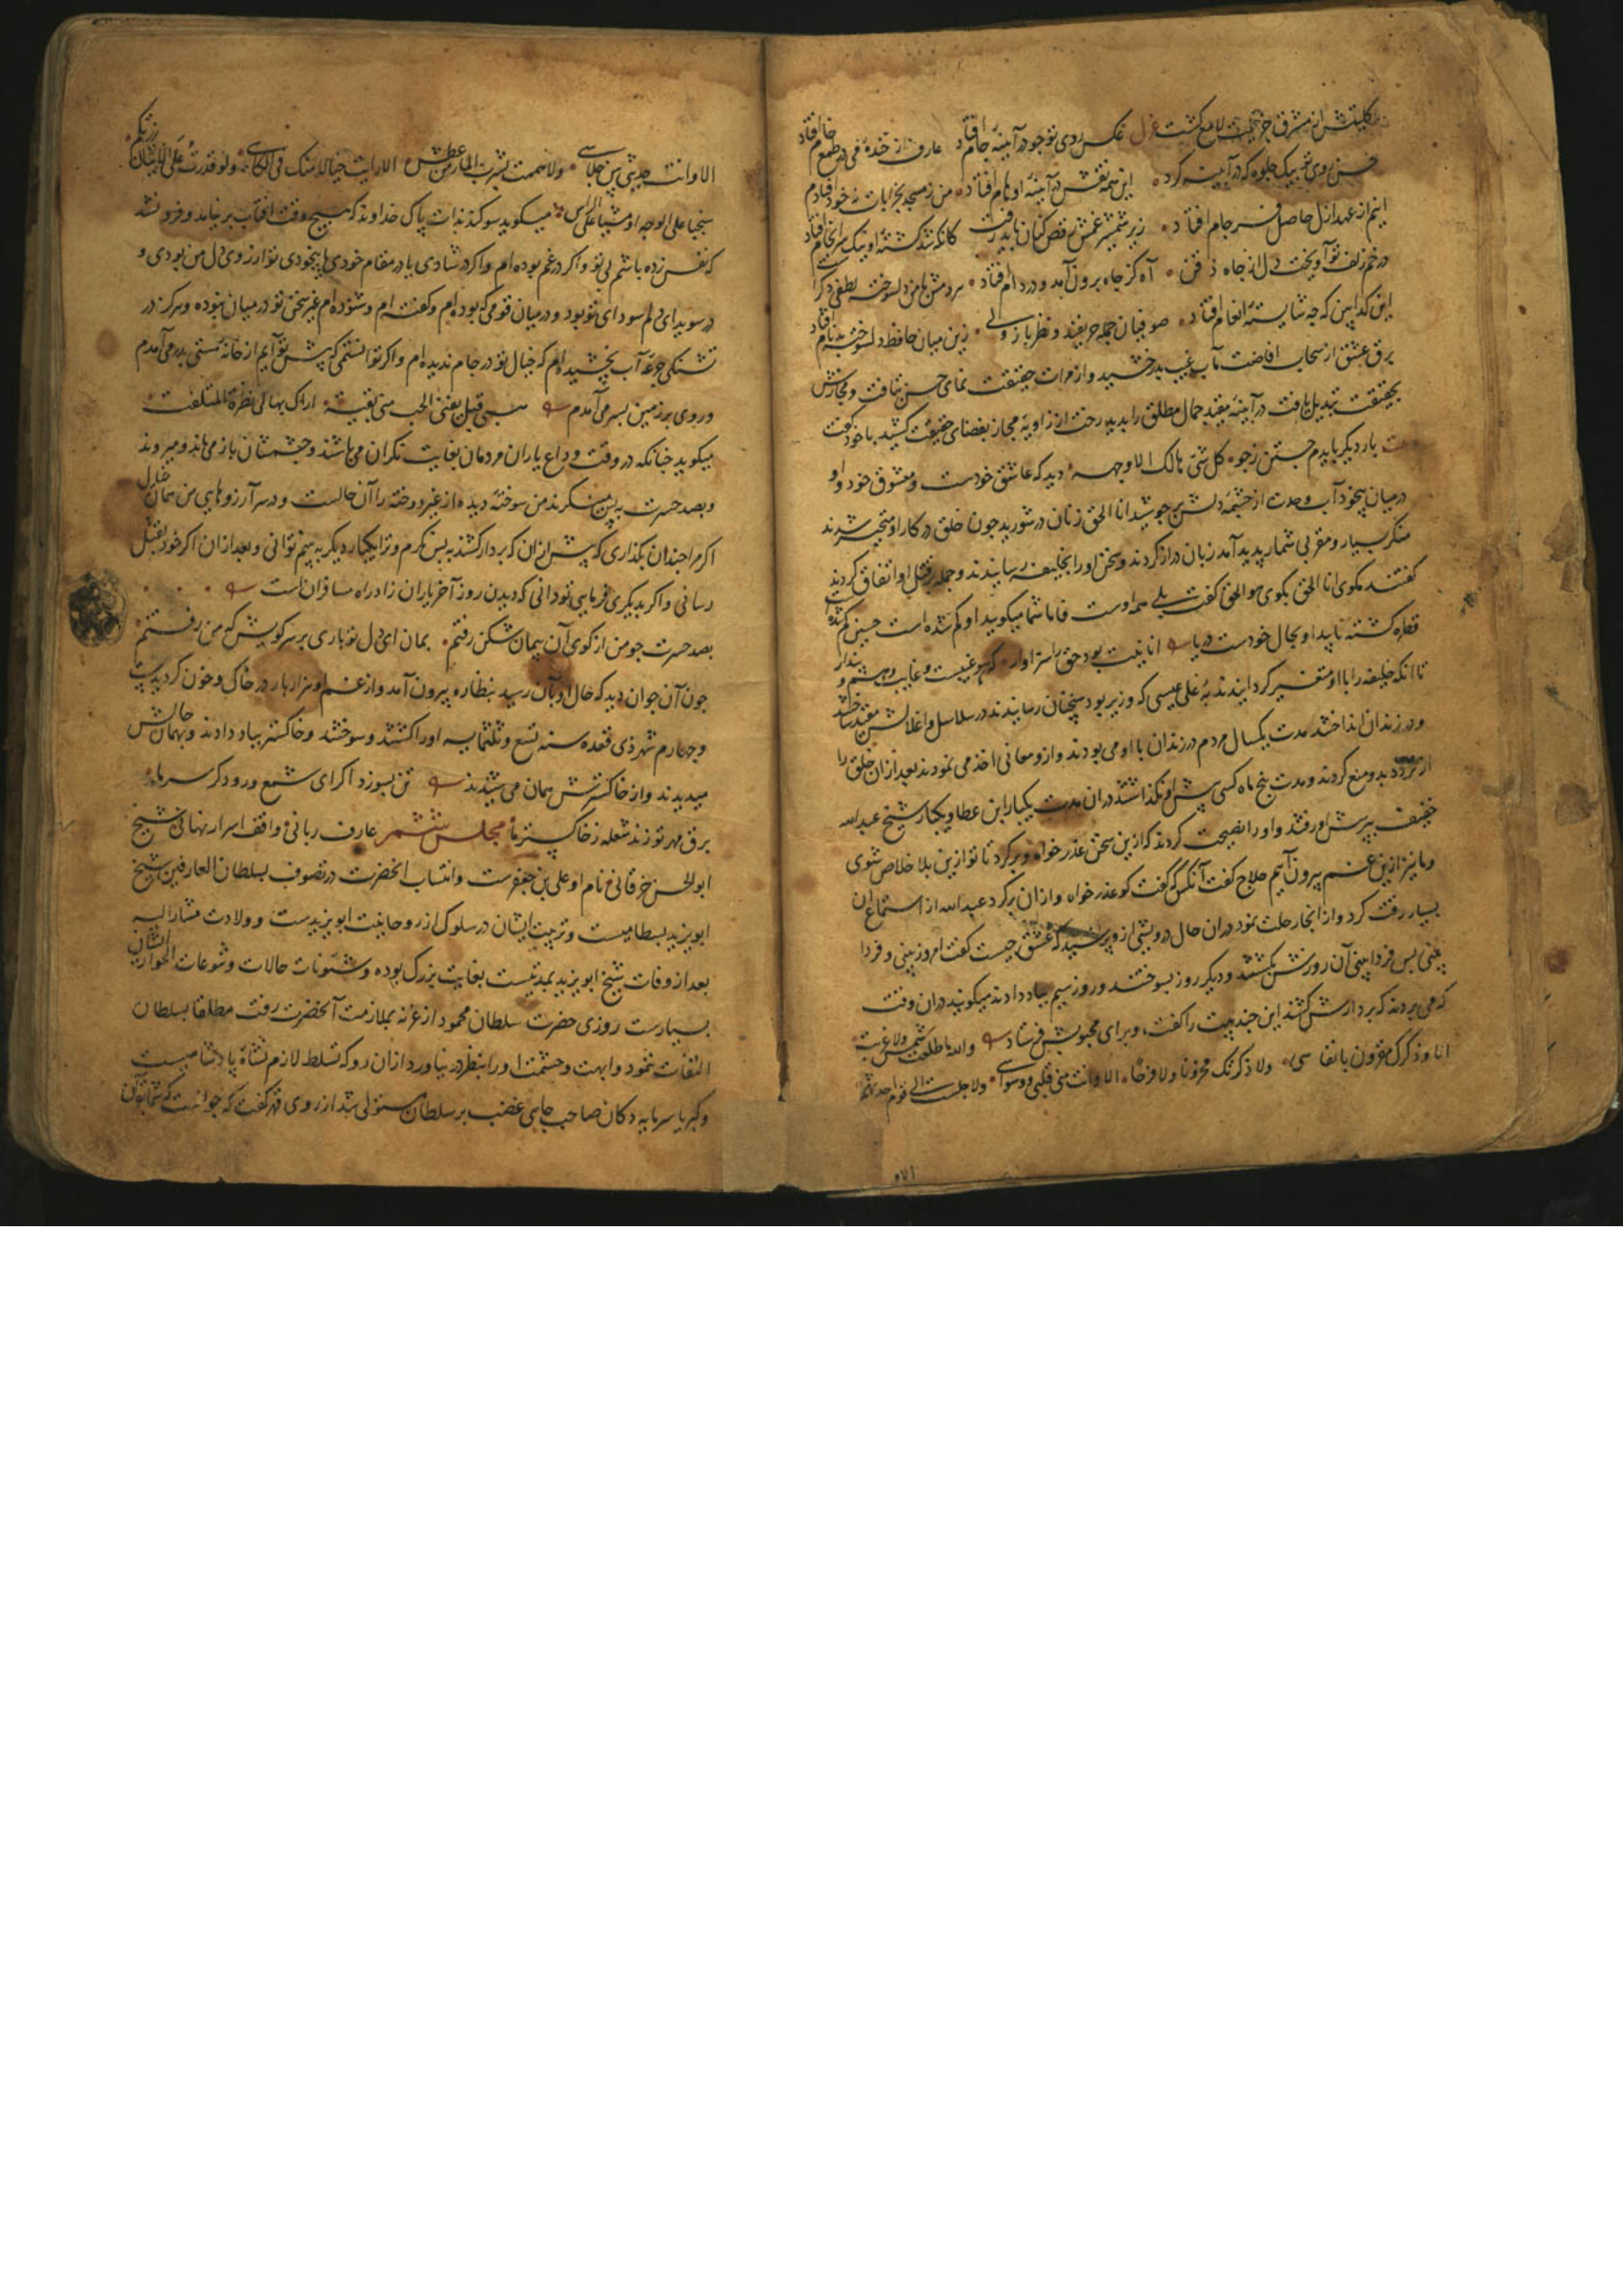 کلیتش از مشرق جزئیت لامع گشت غزل عکس روی تو چو در آینهٔ جام افتاد عارف از خندهٔ می در طمع خام افتاد
حسن روی تو بیک جلوه که در آینه کرد این همه نقش در آینهٔ اوهام افتاد من ز مسجد بخرابات نه خود افتادم
اینم از عهد ازل حاصل فرجام افتاد زیر شمشیر غمش رقص کنان باید رفت کانکه شد کشتهٔ او نیک سرانجام افتاد
در خم زلف تو آویخت دل از چاه ذقن آه کز چاه برون آمد و در دام افتاد هر دمش با من دلسوخته لطفی دگر
این گدا بین که چه شایستهٔ انعام افتاد صوفیان جمله حریفند و نظرباز ولی زین میان حافظ دلسوخته بدنام افتاد
برق عشق از سحاب افاضت مآب غیب بدرخشید و از مرات حقیقت نمای حسن بتافت و مجازش
بحقیقت تبدیل یافت در آینهٔ مقید جمال مطلق را بدید رخت از زاویهٔ مجاز بفضای حقیقت کشید با خود گفت
بار دیگر بایدم جستن ز جو کل شیٔ هالک الا وجهه دید که عاشق خودست و معشوق خود و او
در میان بیخود آب وحدت از چشمهٔ دلش بر جوشید انا الحق زنان در شورید چون خلق در کار او متحیر شدند
منکر بسیار و مقر بی شمار پدید آمد زبان دراز کردند و سخن او را بخلیفه رسانیدند و جمله بر قتل او اتفاق کردند
گفتند مگوی انا الحق بگوی هو الحق گفت بلی همه اوست فاما شما میگویید او گم شده است حسین گم شده
قطره گشته ناپیدا و بحال خودست دریا انانیت بود حق را سزاوار که هو غیبست و غایب وهم و پندار
تا آنکه خلیفه را با او متغیر گردانیدند به علی عیسی که وزیر بود سخنان رسانیدند در سلاسل و اغلالش مقید ساخته
و در زندان انداختند مدت یکسال مردم در زندان با او می بودند و ازو معانی اخذ می نمودند بعد ازان خلق را
از تردد بدو منع کردند و مدت پنج ماه کسی پیش او نگذاشتند دران مدت یکبار ابن عطا و یکبار شیخ عبد الله
خفیف بپرسش او رفتند و او را نصیحت کردند که ازین سخن عذر خواه و برگرد تا تو ازین بلا خلاص شوی
و ما نیز ازین غم بیرون آییم حلاج گفت آنکس که گفت گو عذر خواه و ازان برگرد عبد الله از استماع ان
بسیار رقت کرد و از انجا رحلت نمود دران حال درویشی ازو پرسید که عشق چیست گفت امروز بینی و فردا
بینی پس فردا بینی آن روزش بکشتند و دیگر روز بسوختند و روز سیم بباد دادند میگویند دران وقت
که می بردند که بر دارش کشند این چند بیت را گفت و برای محبوبش فرستاد والله ما طلعت شمس ولا غربت
الا و ذکرک مقرون بانفاسی ولا ذکرتک محزونا ولا فرحا الا وانت منی قلبی و وسواسی ولا جلست الی قوم احدثهم
الا وانت حدیثی بین جلاسی ولا هممت بشرب الماء من عطش الا رایت خیالا منک فی الکاس ولو قدرت علی الاتیان زرتکم
سحبا علی الوجه او مشیا علی الراس میگوید سوگند بذات پاک خداوند که هیچ وقت افتاب بر نیامد و فرو نشد
که نفس زده باشم بی تو و اگر در غم بوده ام و اگر در شادی یا در مقام خودی یا بیخودی تو آرزوی دل من بودی و
در سویدای دلم سودای تو بود و در میان قومی که بوده ام و گفته ام و شنوده ام غیر سخن تو در میان نبوده و هرگز در
تشنگی جرعهٔ آب نچشیده ام که خیال تو در جام ندیده ام و اگر توانستمی که پیش تو آیم از خانهٔ مستی بدر می آمدم
و روی بر زمین بسر می آمدم
میگوید چنانکه در وقت وداع یاران مردمان بغایت نگران می باشند و چشمشان باز می ماند و میروند
و بصد حسرت به پس مینگرند من سوخته دیده از غیر دوخته را آن حالست و در سر آرزوهای من همان خیال
اگر مرا چندان بگذاری که پیش ازان که بر دار کشند به پس نگرم و ترا یکبار دیگر به بینم توانی و بعد ازان اگر خود بقتل
رسانی و اگر بدیگری فرمایی تو دانی که دیدن روز آخر یاران زاد راه مسافران است
بصد حسرت چو من از کوی آن پیمان شکن رفتم بمان ای دل تو باری بر سر کویش که من رفتم
چون آن جوان دید که حال او بآن رسید بنظاره بیرون آمد و از غم او هزار بار در خاک و خون گردید
و چهارم شهر ذی قعده سنه تسع و ثلثمایه او را کشتند و سوختند و خاکستر بباد دادند و بهمان حالش
میدیدند و از خاکسترش همان می شنیدند تن بسوزد اگر ای شمع ورود گر سر ما
برق مهر تو زند شعله ز خاکستر ما مجلس ششم عارف ربانی و واقف اسرار نهانی شیخ
ابو الحسن خرقانی و نام او علی بن جعفرست وانتساب انحضرت در تصوف بسلطان العارفین شیخ
ابو یزید بسطامیست و تربیت ایشان در سلوک از روحانیت ابو یزیدست و ولادت مشار الیه
بعد از وفات شیخ ابو یزید بمدتیست بغایت بزرگ بوده و شئونات حالات و شوعات اطوار ایشان
بسیارست روزی حضرت سلطان محمود از غزنه بملازمت آنحضرت رفت مطلقا بسلطان
التفات ننمود و ابهت و حشمت او را بنظر در نیاورد ازان رو که تسلط لازم نشاهٔ پادشاهیست
و کبریا سرمایه دکان صاحب جاهی غضب بر سلطان مستولی شد از روی قهر گفت که